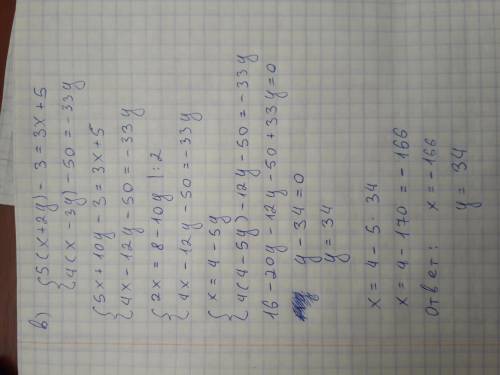 в) { 5(x+2y) - 3 = 3x + 5
{ 4(x - 3y) - 50 = -33y
{ 5x + 10y - 3 = 3x + 5
{ 4x - 12y - 50 = -33y
{ 2x = 8 - 10y | : 2
{ 4x - 12y - 50 = -33y
{ x = 4 - 5y
{ 4(4 - 5y) - 12y - 50 = -33y
16 - 20y - 12y - 50 + 33y = 0
y - 34 = 0
y = 34
x = 4 - 5 · 34
x = 4 - 170 = -166
Ответ: x = -166
y = 34